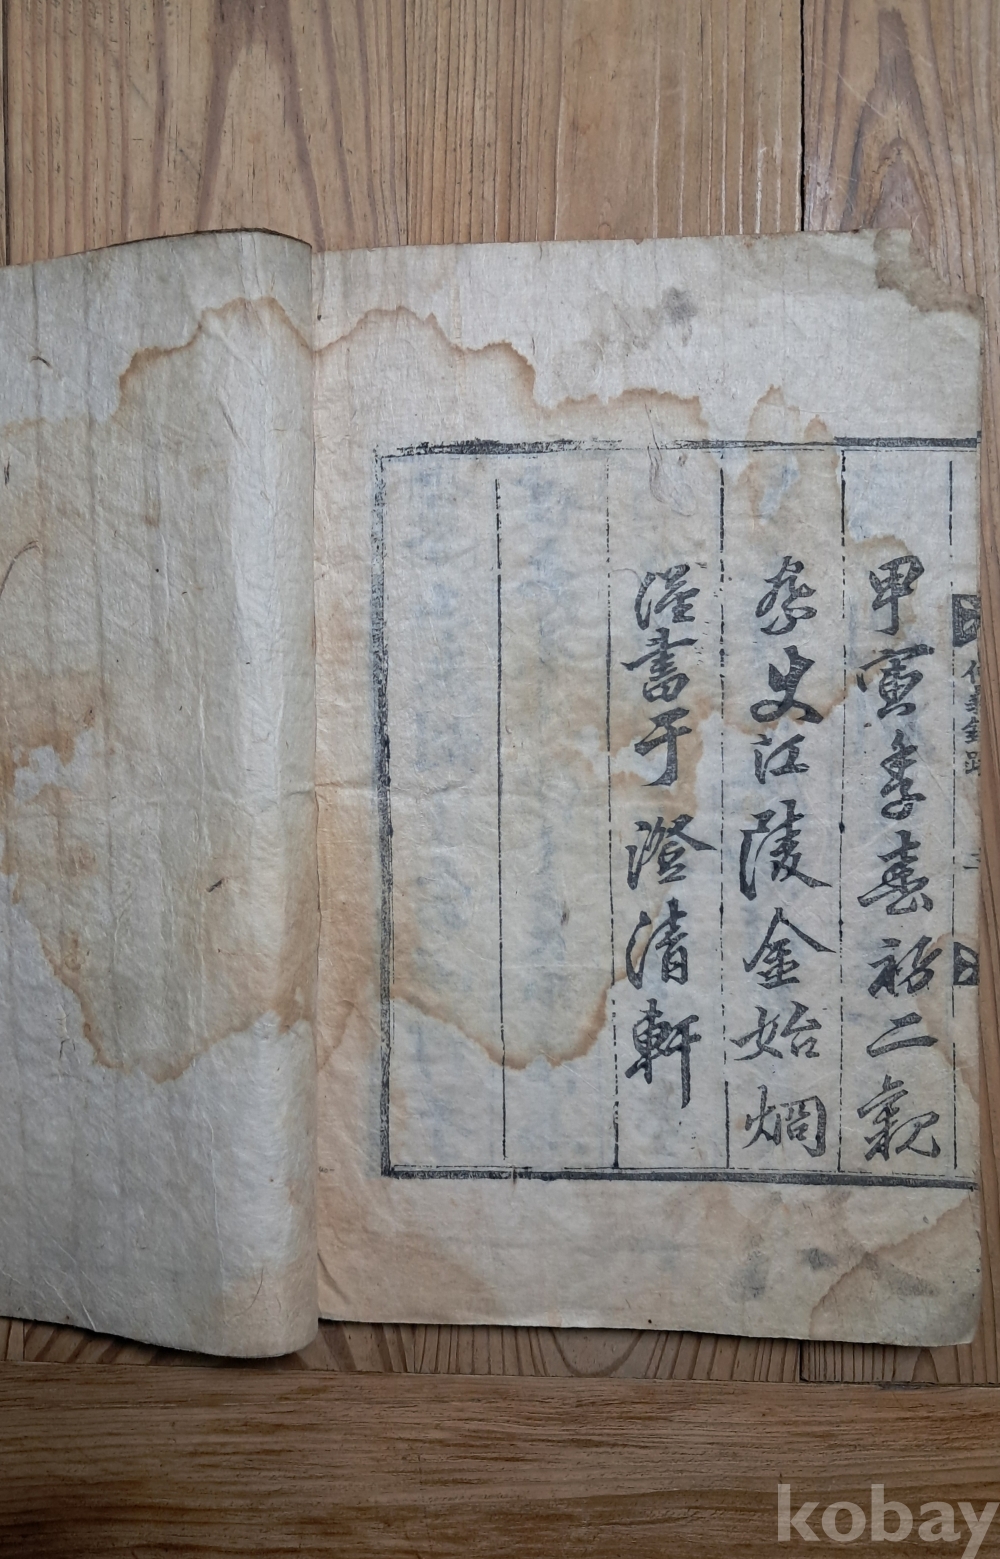 甲寅季春初二亵
李史江陵金始烱
謹書于澄清軒
kobay